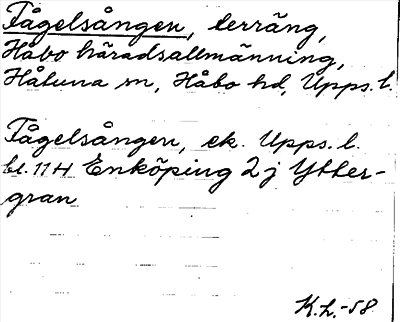 Fågelsången, terräng,
Håbo häradsallmänning,
Håtuna sn, Håbo hd, Upps. l.
Fågelsången, ek. Upps. l.
bl. 11 H Enköping 2 j Ytter-
gran
K.L.-58